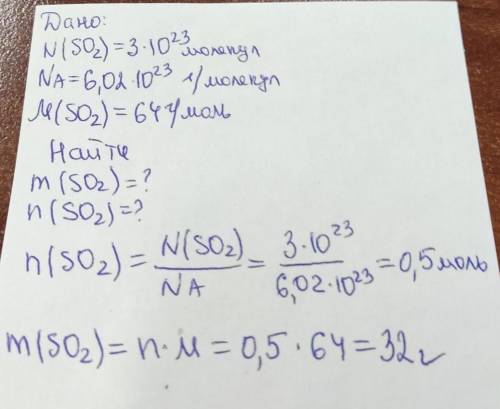 Дано:
N(SO₂)=3·10²³ молекул
NA=6,02·10²³ 1/молекул
M(SO₂)=64 г/моль
Найти
m(SO₂)=?
n(SO₂)=?
n(SO₂) = N(SO₂)/NA = 3·10²³/6,02·10²³ = 0,5 моль
m(SO₂)= n·M = 0,5·64 = 32 г